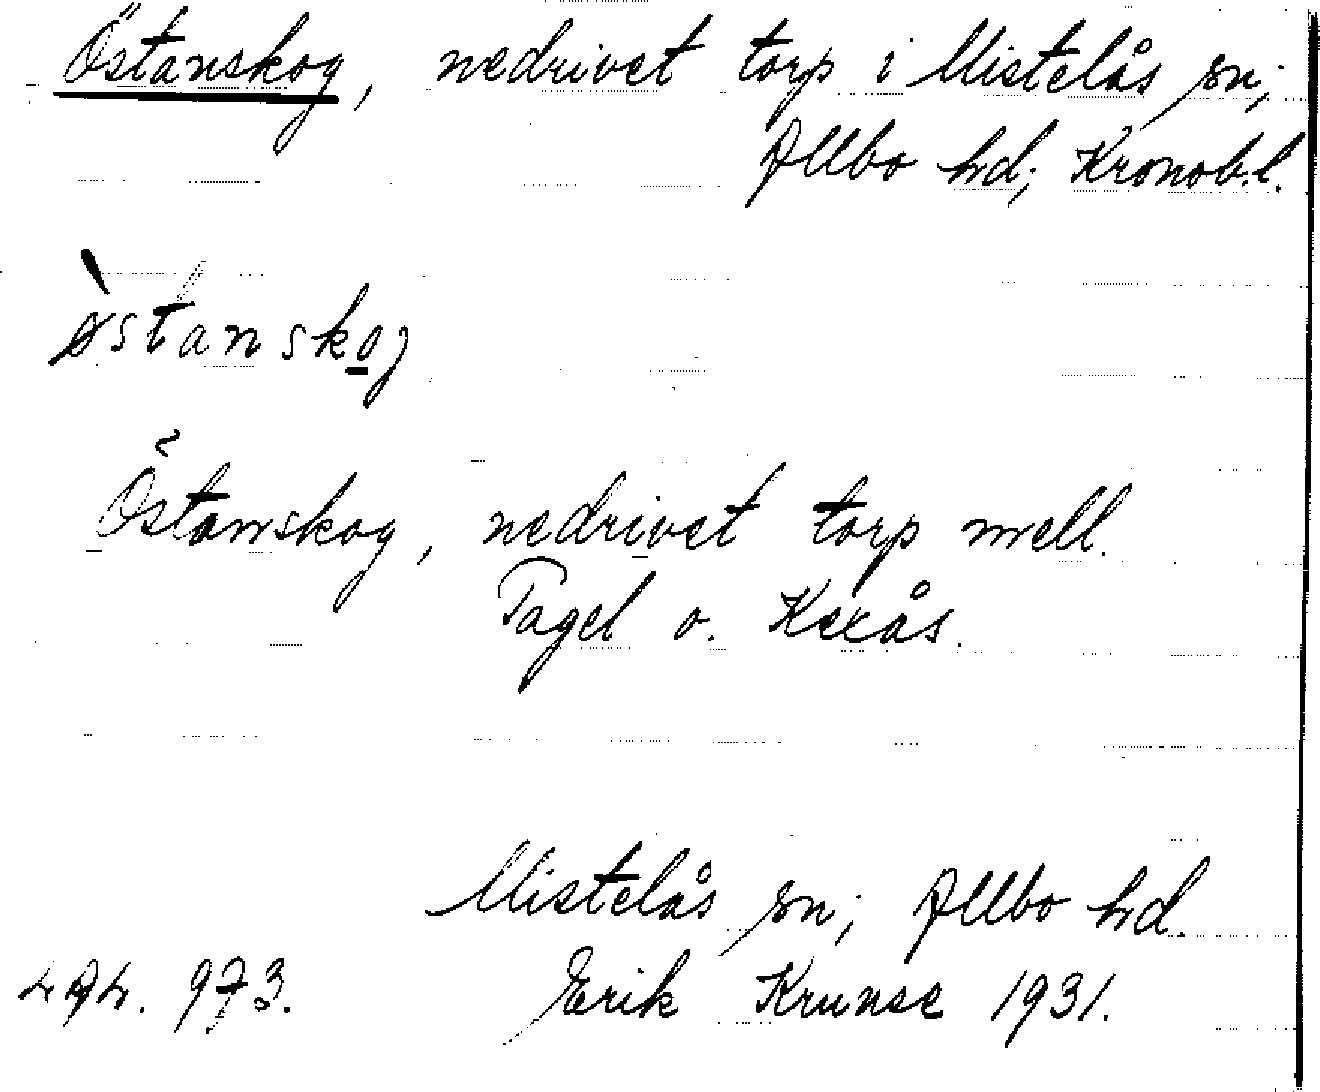 Östanskog, nedrivet torp i Mistelås sn;
Allbo hd; Kronob.l.
ø̀stanskog
Östanskog, nedrivet torp mell.
Tagel o. Kexås.
Mistelås sn; Allbo hd.
973. Erik Krunse 1931.